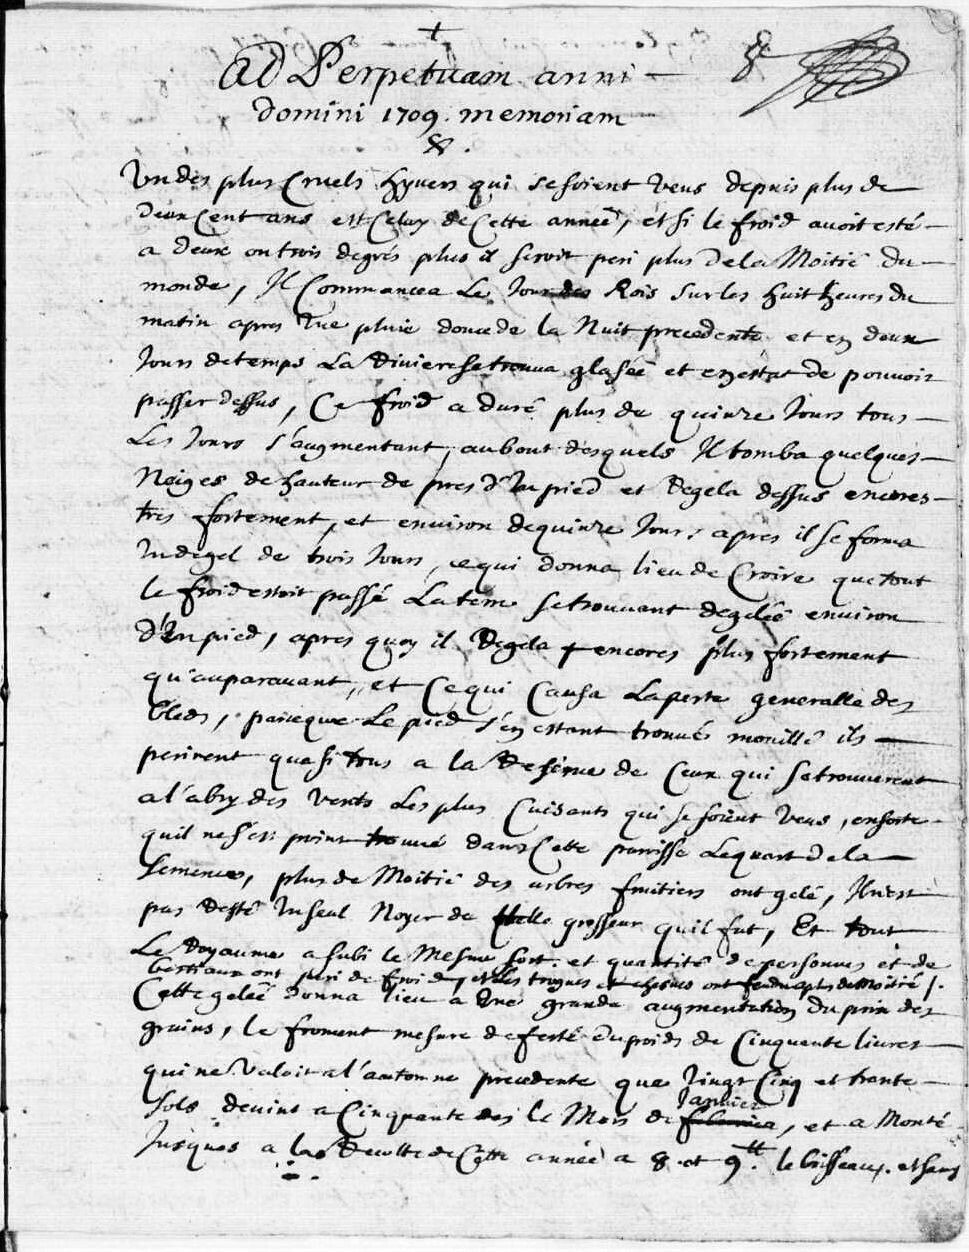 +
Ad Perpetuam anni 8
domini 1709. memoriam
Un des plus Cruels hyvers qui se soient veus depuis plus de
deux Cent ans est Celuy de Cette anneé, et si le froid avoit esté
a deux ou trois degrés plus il seroit peri plus de la Moitié du
monde, Il Commancea Le Jour des Rois sur les huit heures du
matin apres Une pluie douce de la Nuit precedente et en deux
Jours de temps La Riviere se trouva glaseé et en estat de pouvoir
passer dessus, Ce froid a duré plus de quinze Jours tous
Les Jours s'augmentant, au bout desquels Il tomba quelques
Neiges de hauteur de pres d'Un pied et Regela dessus encores
tres fortement, et environ de quinze Jours apres il se forma
Un degel de trois Jours, ce qui donna lieu de Croire que tout
le froid estoit passé La terre se trouvant degeleé environ
d'Un pied, apres quoy il Regela encores plus fortement
qu'auparavant, et Ce qui Causa La perte generalle des
bleds, parceque Le pied s'en estant trouvés mouillé ils
perirent quasi tous a la Reserve de Ceux qui se trouverent
a l'abry des vents Les plus Cuisants qui se soient veus, en sorte
quil ne s'est point trouvé dans Cette parroisse Le quart de la
semence, plus de Moitié des arbres fruitiers ont gelé, Il n'est
pas Resté Un seul Noyer de quelle grosseur quil fut, Et tout
Le Royaume a subi le Mesme sort et quantité de personnes et de
bestiaux ont peri de froid, et les trognes et chesnes ont fendu a plus de Moitié /.
Cette geleé donna lieu a Une grande augmentation du prix des
grains, le froment mesure de ferté du poids de Cinquante livres
qui ne Valoit a l'automne precedente que Vingt Cinq et trente
Janvier
Sols devint a Cinquante des le Mois de, et a Monté
Jusques a la Recolte de Cette anneé a 8 et 9 tt. le boisseau. et sans